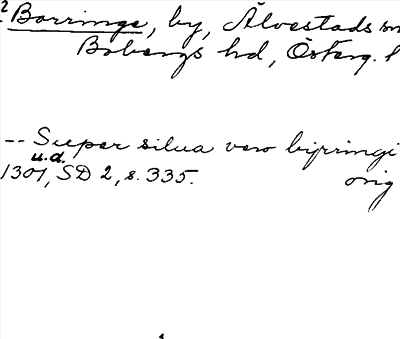 2 Borringe, by, Älvestads sn
Bobergs hd, Österg. l
-- Super silua vero bijrringi
u.d.
1301, SD 2, s. 335. orig